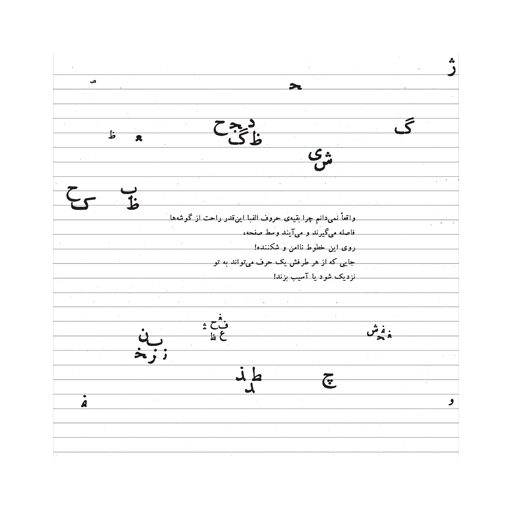 ژ
حـ
گ
د جـ ح
ظ گ
ی
ش
ب
ظ
ح
کـ
واقعاً نمی‌دانم چرا بقیه‌ی حروف الفبا این‌قدر راحت از گوشه‌ها
فاصله می‌گیرند و می‌آیند وسط صفحه،
روی این خطوط ناامن و شکننده!
جایی که از هر طرفش یک حرف می‌تواند به تو
نزدیک شود یا آسیب بزند!
ن
ب
خـ ز ز
ط ذ
د
چ
و